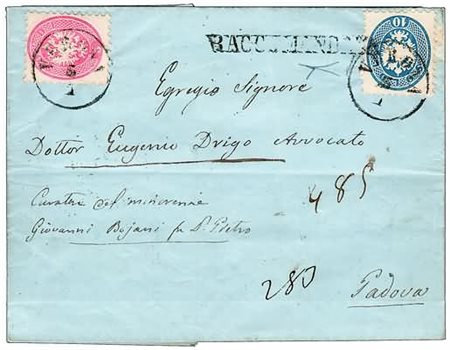 RACCOMANDATA
10
Egregio Signore
Dottor Eugenio Drigo Avvocato
Curatore del minorenne
Giovanni Bojani per S. Pietro
485
283
Padova